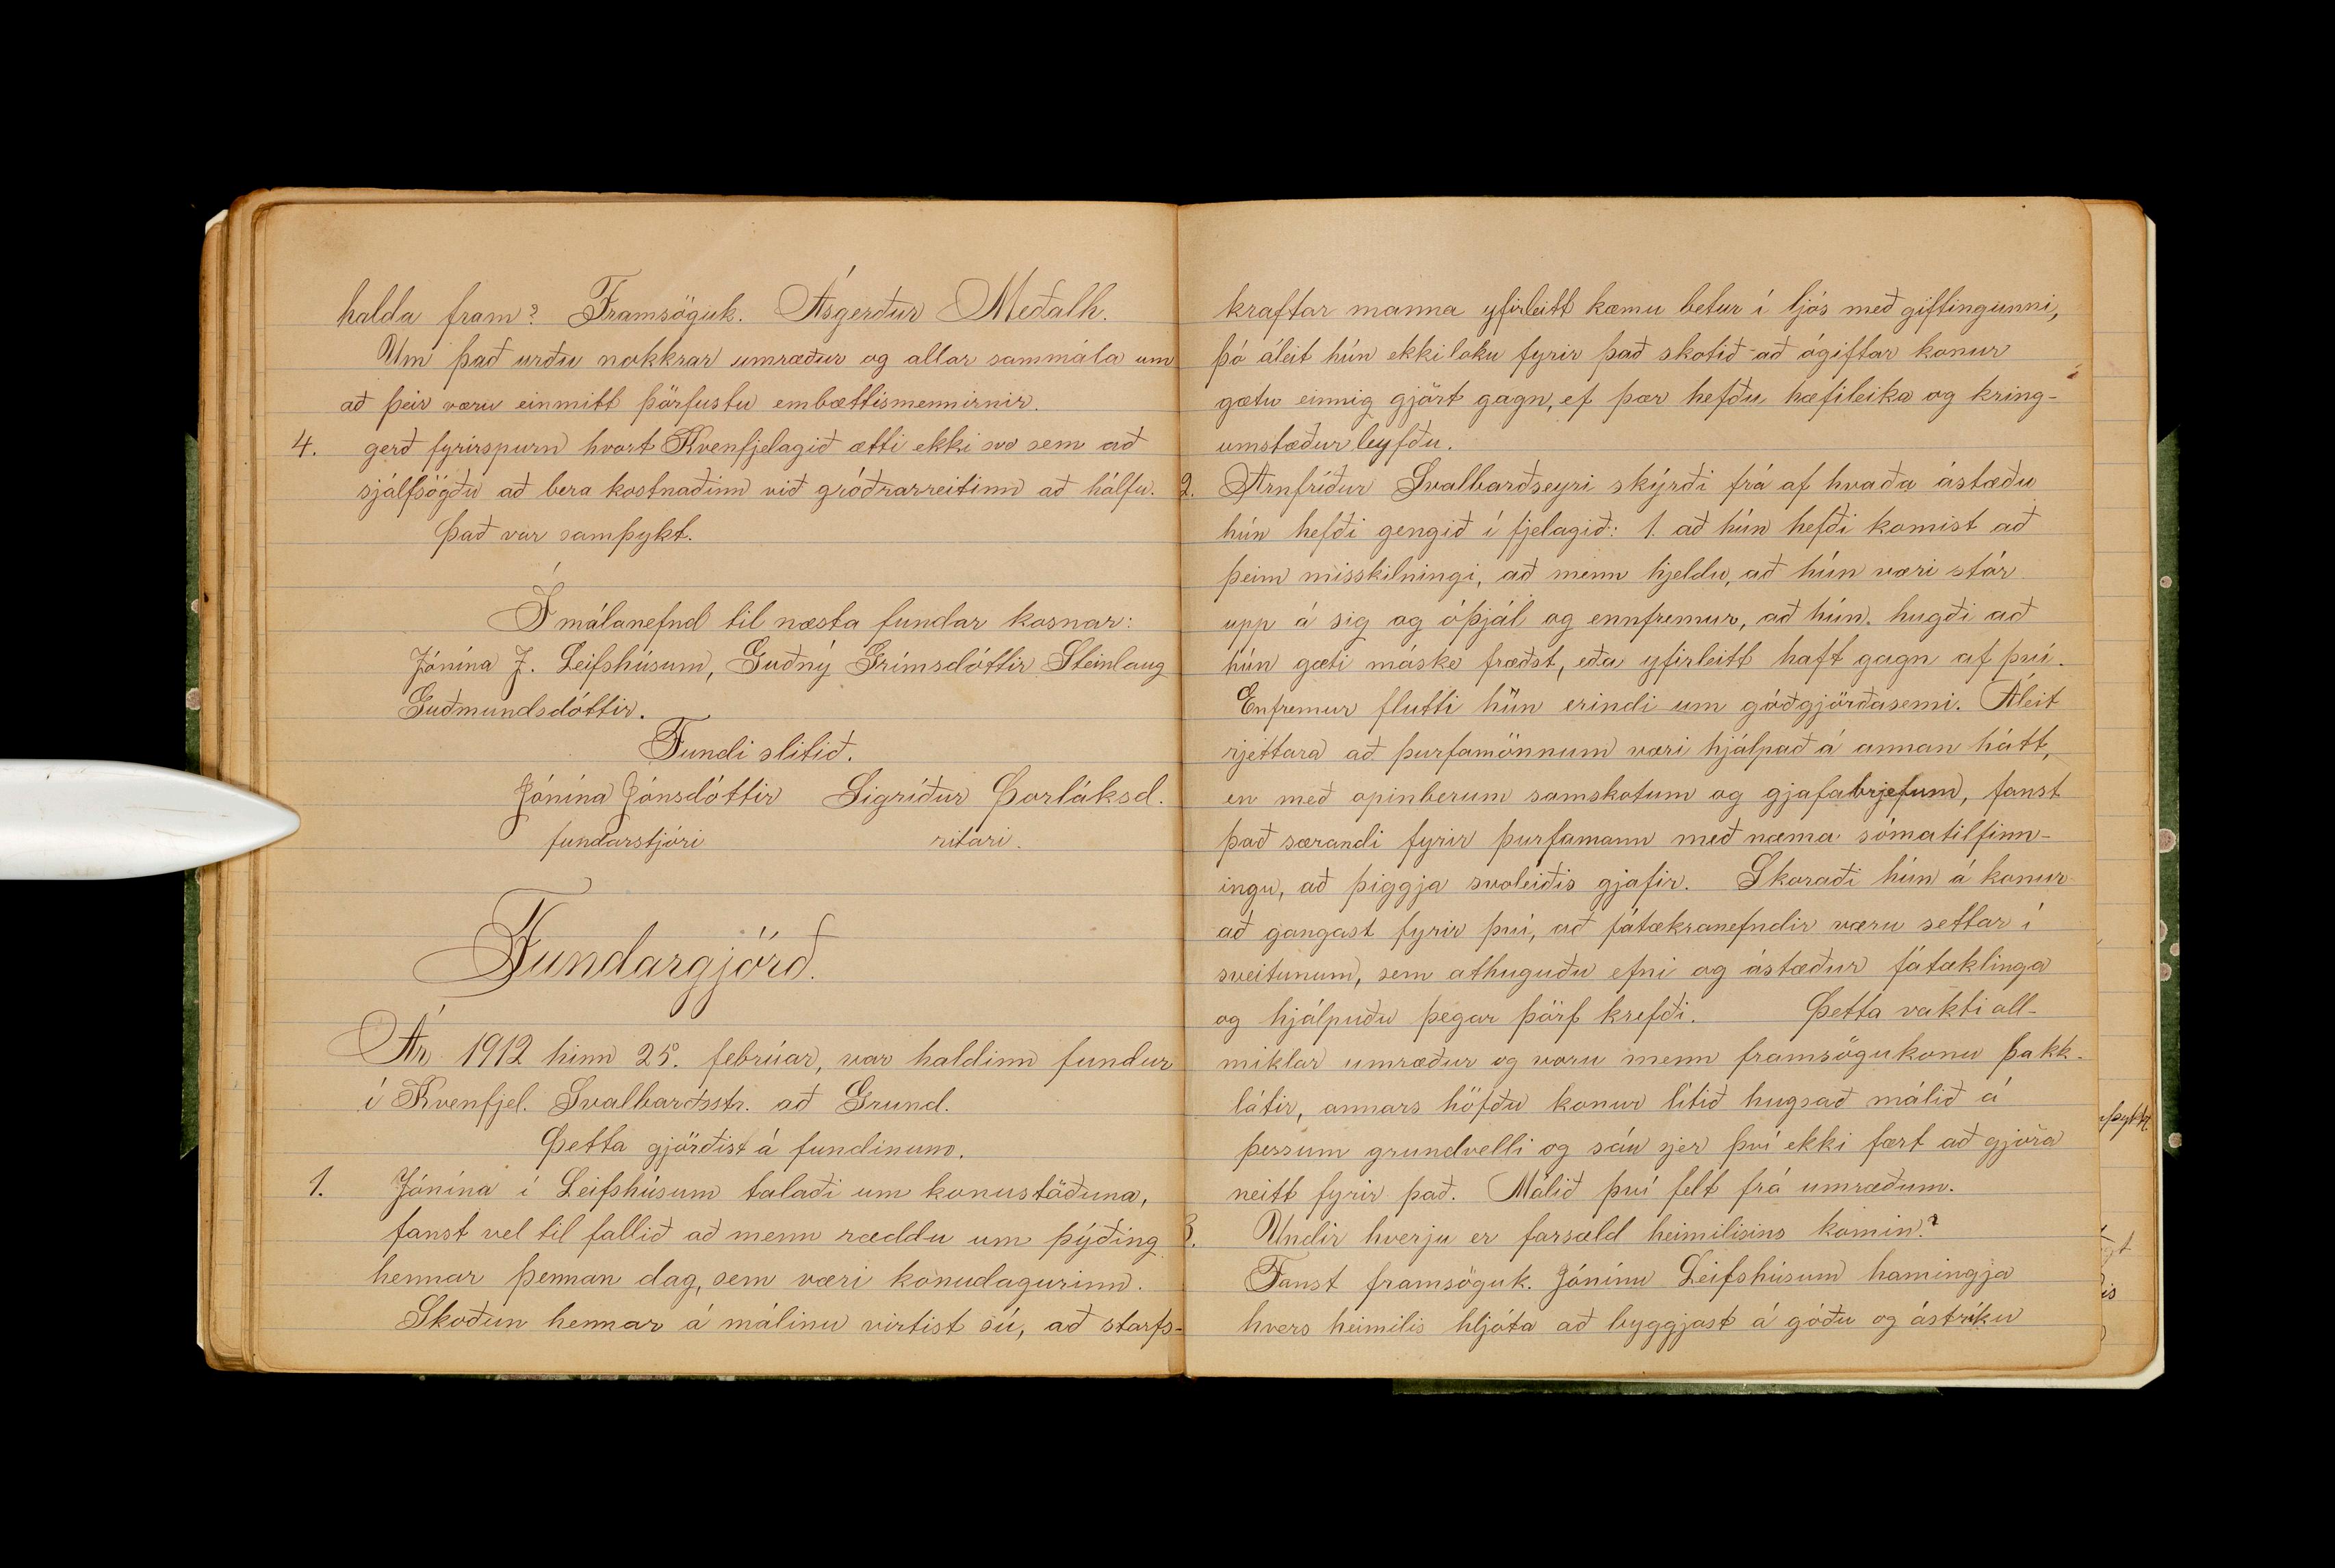 halda fram? Framsöguk. Ásgerður Meðalh.
Um það urðu nokkrar umræður og allar sammála um
að þeir væru einmitt þörfustu embættismennirnir.
4. gerð fyrirspurn hvort Kvenfjelagið ætti ekki svo sem að
sjálfsögðu að bera kostnaðinn við gróðrarreitinn að hálfu.
Það var samþykt.
Í málanefnd til næsta fundar kosnar:
Jónína J. Leifshúsum, Guðný Grímsdóttir Steinlaug
Guðmundsdóttir.
Fundi slitið.
Jónína Jónsdóttir Sigríður Þorláksd.
fundarstjóri ritari.
Fundargjörð.
Ár 1912 hinn 25. febrúar, var haldinn fundur
í Kvenfjel. Svalbarðsstr. að Grund.
Þetta gjörðist á fundinum.
1. Jónína í Leifshúsum talaði um konustöðuna,
fanst vel til fallið að menn ræddu um þýðing
hennar þennan dag, sem væri konudagurinn.
Skoðun hennar á málinu virtist sú, að starfs-
kraftar manna yfirleitt kæmu betur í ljós með giftingunni,
þó áleit hún ekki loku fyrir það skotið að ógiftar konur
gætu einnig gjört gagn, ef þær hefðu hæfileika og kring-
umstæður leyfðu.
2. Arnfríður Svalbarðseyri skýrði frá af hvaða ástæðu
hún hefði gengið í fjelagið: 1. að hún hefði komist að
þeim misskilningi, að menn hjeldu, að hún væri stór
upp á sig og óþjál og ennfremur, að hún. hugði að
hún gæti máske fræðst, eða yfirleitt haft gagn af því.
Enfremur flutti hún erindi um góðgjörðasemi. Áleit
rjettara að þurfamönnum væri hjálpað á annan hátt,
en með opinberum samskotum og gjafabrjefum, fanst
það særandi fyrir þurfamann með næma sómatilfinn-
ingu, að þiggja svoleiðis gjafir. Skoraði hún á konur
að gangast fyrir því, að fátækranefndir væru settar í
sveitunum, sem athuguðu efni og ástæður fátæklinga
og hjálpuðu þegar þörf krefði. Þetta vakti all-
miklar umræður og voru menn framsögukonu þakk-
látir, annars höfðu konur lítið hugsað málið á
þessum grundvelli og sáu sjer því ekki fært að gjöra
neitt fyrir það. Málið því felt frá umræðum.
3. Undir hverju er farsæld heimilisins komin?
Fanst framsöguk. Jónínu Leifshúsum hamingja
hvers heimilis hljóta að byggjast á góðu og ástríku